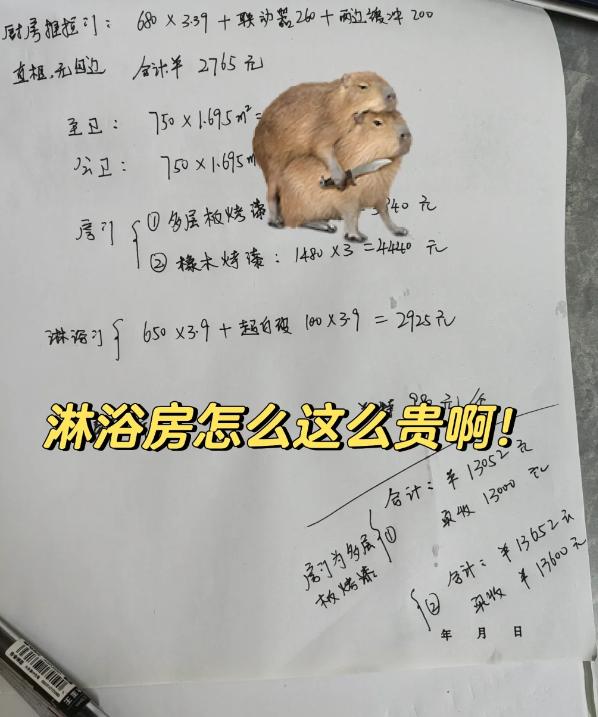 厨房推拉门： 680 × 3.39 + 联动器 260 + 两边缓冲 200
直框，无包边 合计￥ 2765 元
主卫： 750 × 1.695m² =
公卫： 750 × 1.695m
房门 ① 多层板烤漆 40 元
② 橡木烤漆： 1480 × 3 = 4440 元
淋浴门 650 × 3.9 + 超白玻 100 × 3.9 = 2925 元
淋浴房怎么这么贵啊！
房门为多层板烤漆
① 合计：￥ 13052 元
实收 13000 元
② 合计：￥ 13652 元
实收 ￥ 13600 元
年 月 日